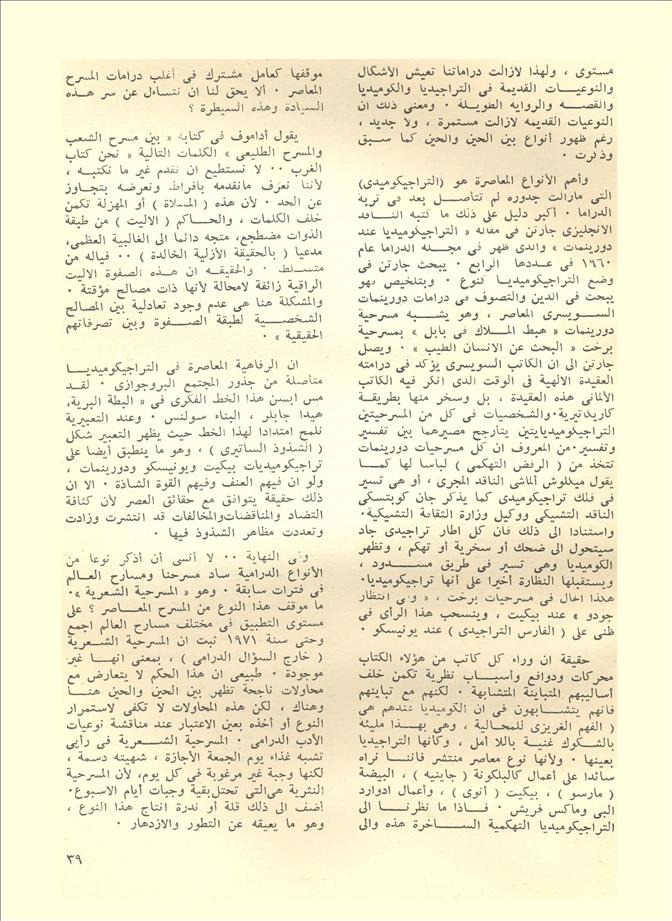 مستوى ، ولهذا لازالت دراماتنا تعيش الأشكال
والنوعيـات القديمة فى التراجيديا والكوميديا
والقصـه والروايه الطويلـة ٠ ومعنى ذلك ان
النوعيات القديمه لازالت مستمرة ، ولا جديد ،
رغم ظهور أنواع بين الحين والحين كما سـبق
وذكرت ٠
وأهم الأنواع المعاصرة هو (التراجيكوميدى)
التى مازالت جدوره لم تتأصـل بعد فى تربة
الدراما ٠ أكبر دليل على ذلك ما كتبه النـاقد
الانجليزى جارتن فى مقاله « التراجيكوميديا عند
دورينمات » والدى ظهر فى مجـله الدراما عام
١٩٦٠ فى عـددها الرابع ٠ يبحث جارتن فى
وضع التراجيكوميديـا كنوع ٠ وبتلخيص فهو
يبحث فى الدين والتصوف فى درامات دورينمات
السـويسرى المعاصر ، وهو يشـبه مسرحية
دورينمات « هبط المـلاك فى بابل » بمسرحية
برخت « البحث عن الانسان الطيب » ٠ ويصل
جارتن الى ان الكاتب السويسرى يؤكد فى درامته
العقيدة الالهية فى الوقت الدى انكر فيه الكاتب
الألمانى هذه العقيدة ، بل وسخر منها بطريقـة
كاريكتيرية٠والشخصيات فى كل من المسرحيتين
التراجيكوميدايتين يتأرجح مصيرهما بين تفسير
وتفسير٠من المعروف ان كل مسرحيات دورينمات
تتخذ من ( الرفض التهكمى ) لباسا لها كمـا
يقول ميكلوش ألماشى الناقد المجرى ، أو هى تسير
فى فلك تراجيكوميدى كما يذكر جان كوبتسكى
الناقد التشيكى ووكيل وزارة الثقافة التشيكية٠
واستنادا الى ذلك فان كل اطار تراجيدى جاد
سيتحول الى ضحك أو سخرية أو تهكم ، وتظهر
الكوميديا وهى تسير فى طريق مسـدود ،
ويستقبلها النظارة أخيرا على أنها تراجيكوميديا٠
هـذا الحال فى مسرحيات برخت ، « وفى انتظار
جودو » عند بيكيت ، وينسحب هذا الرأى فى
ظنى على ( الفارس التراجيدى ) عند يونيسكو ٠
حقيقة ان وراء كل كاتب من هؤلاء الكتاب
محركات ودوافع وأسبـاب نظرية تكمن خلف
أساليبهم المتباينة المتشابهة ٠ لكنهم مع تباينهم
فانهم يتشـابهون فى ان الكوميديا عندهم هى
( الفهم الغريزى للمحالية ، وهى بهـذا مليئه
بالشكوك غنية باللا أمل ، وكأنها التراجيديا
بعينها ٠ ولأنها نوع معاصر منتشر فاننـا نراه
سائدا على أعمال كالبلكونة ( جاينيه ) ، البيضة
( مارسو ) ، بيكيت ( أنوى ) ، وأعمال ادوارد
البى وماكس فريش ٠ فـاذا ما نظرنـا الى
التراجيكوميديا التهكمية السـاخرة هذه والى
موقفها كعامل مشترك فى أغلب درامات المسرح
المعاصر ٠ ألا يحق لنا ان نتساءل عن سر هـذه
السيادة وهذه السيطرة ؟
يقول أدأموف فى كتابه « بين مسرح الشعب
والمسرح الطليعى » الكلمات التالية « نحن كتاب
الغرب ٠٠ لا نستطيع ان نقدم غير ما نكتبه ،
لأننا نعرف مانقدمه بافراط ونعرضه بتجاوز
عن الحد ٠ لأن هذه ( المسلاة ) أو المهزلة تكمن
خلف الكلمات ، والحـاكم ( الاليت ) من طبقة
الذوات مضطجع، متجه دائما الى الغالبية العظمى،
مدعيا ( بالحقيقة الأزلية الخالدة ) ٠٠ فياله من
متسـلط ٠ والحقيقـه ان هـذه الصفوة الاليت
الراقية زائفة لامحالة لأنها ذات مصالح مؤقتة ٠
والمشكلة هنا هى عدم وجود تعادلية بين المصالح
الشخصـية لطبقة الصـفوة وبين تصرفاتهم
الحقيقية » ٠
ان الرفاهية المعاصرة فى التراجيكوميديـا
متأصلة من جذور المجتمع البروجوازى ٠ لقـد
مس ابسن هذا الخط الفكرى فى « البطة البرية،
هيدا جابلر ، البناء سولنس ٠ وعند التعبيرية
نلمح امتدادا لهذا الخط حيث يظهر التعبير شكل
( الشذوذ الساتيرى ) ، وهو ما ينطبق أيضا على
تراجيكوميديات بيكيت ويونيسكو ودورينمات ،
ولو ان فيهم العنف وفيهم القوة الشاذة ٠ الا ان
ذلك حقيقة يتوافق مع حقائق العصر لأن كثافة
التضاد والمناقضات والمخالفات قد انتشرت وزادت
وتعددت مظاهر الشذوذ فيها ٠
وفى النهاية ٠٠ لا أنسى أن أذكر نوعا من
الأنواع الدرامية ساد مسرحنا ومسارح العـالم
فى فترات سابقة ٠ وهو « المسرحية الشعرية »٠
ما موقف هذا النوع من المسرح المعـاصر ؟ على
مستوى التطبيق فى مختلف مسارح العالم اجمع
وحتى سنة ١٩٧١ ثبت ان المسرحية الشـعرية
( خارج السؤال الدرامى ) ، بمعنى انهـا غير
موجودة ٠ طبيعى ان هذا الحكم لا يتعارض مع
محاولات ناجحة تظهر بين الحين والحين هنـا
وهناك ، لكن هذه المحاولات لا تكفى لاستمرار
النوع أو أخذه بعين الاعتبار عند مناقشة نوعيات
الأدب الدرامى ٠ المسرحية الشـعرية فى رأيى
تشبه غذاء يوم الجمعة الأجازة ، شهيته دسمة ،
لكنها وجبة غير مرغوبة فى كل يوم، لأن المسرحية
النثرية هى التى تحتل بقية وجبات أيام الاسبوع٠
أضف الى ذلك قلة أو ندرة انتاج هذا النوع ،
وهو ما يعيقه عن التطور والازدهار ٠
٣٩